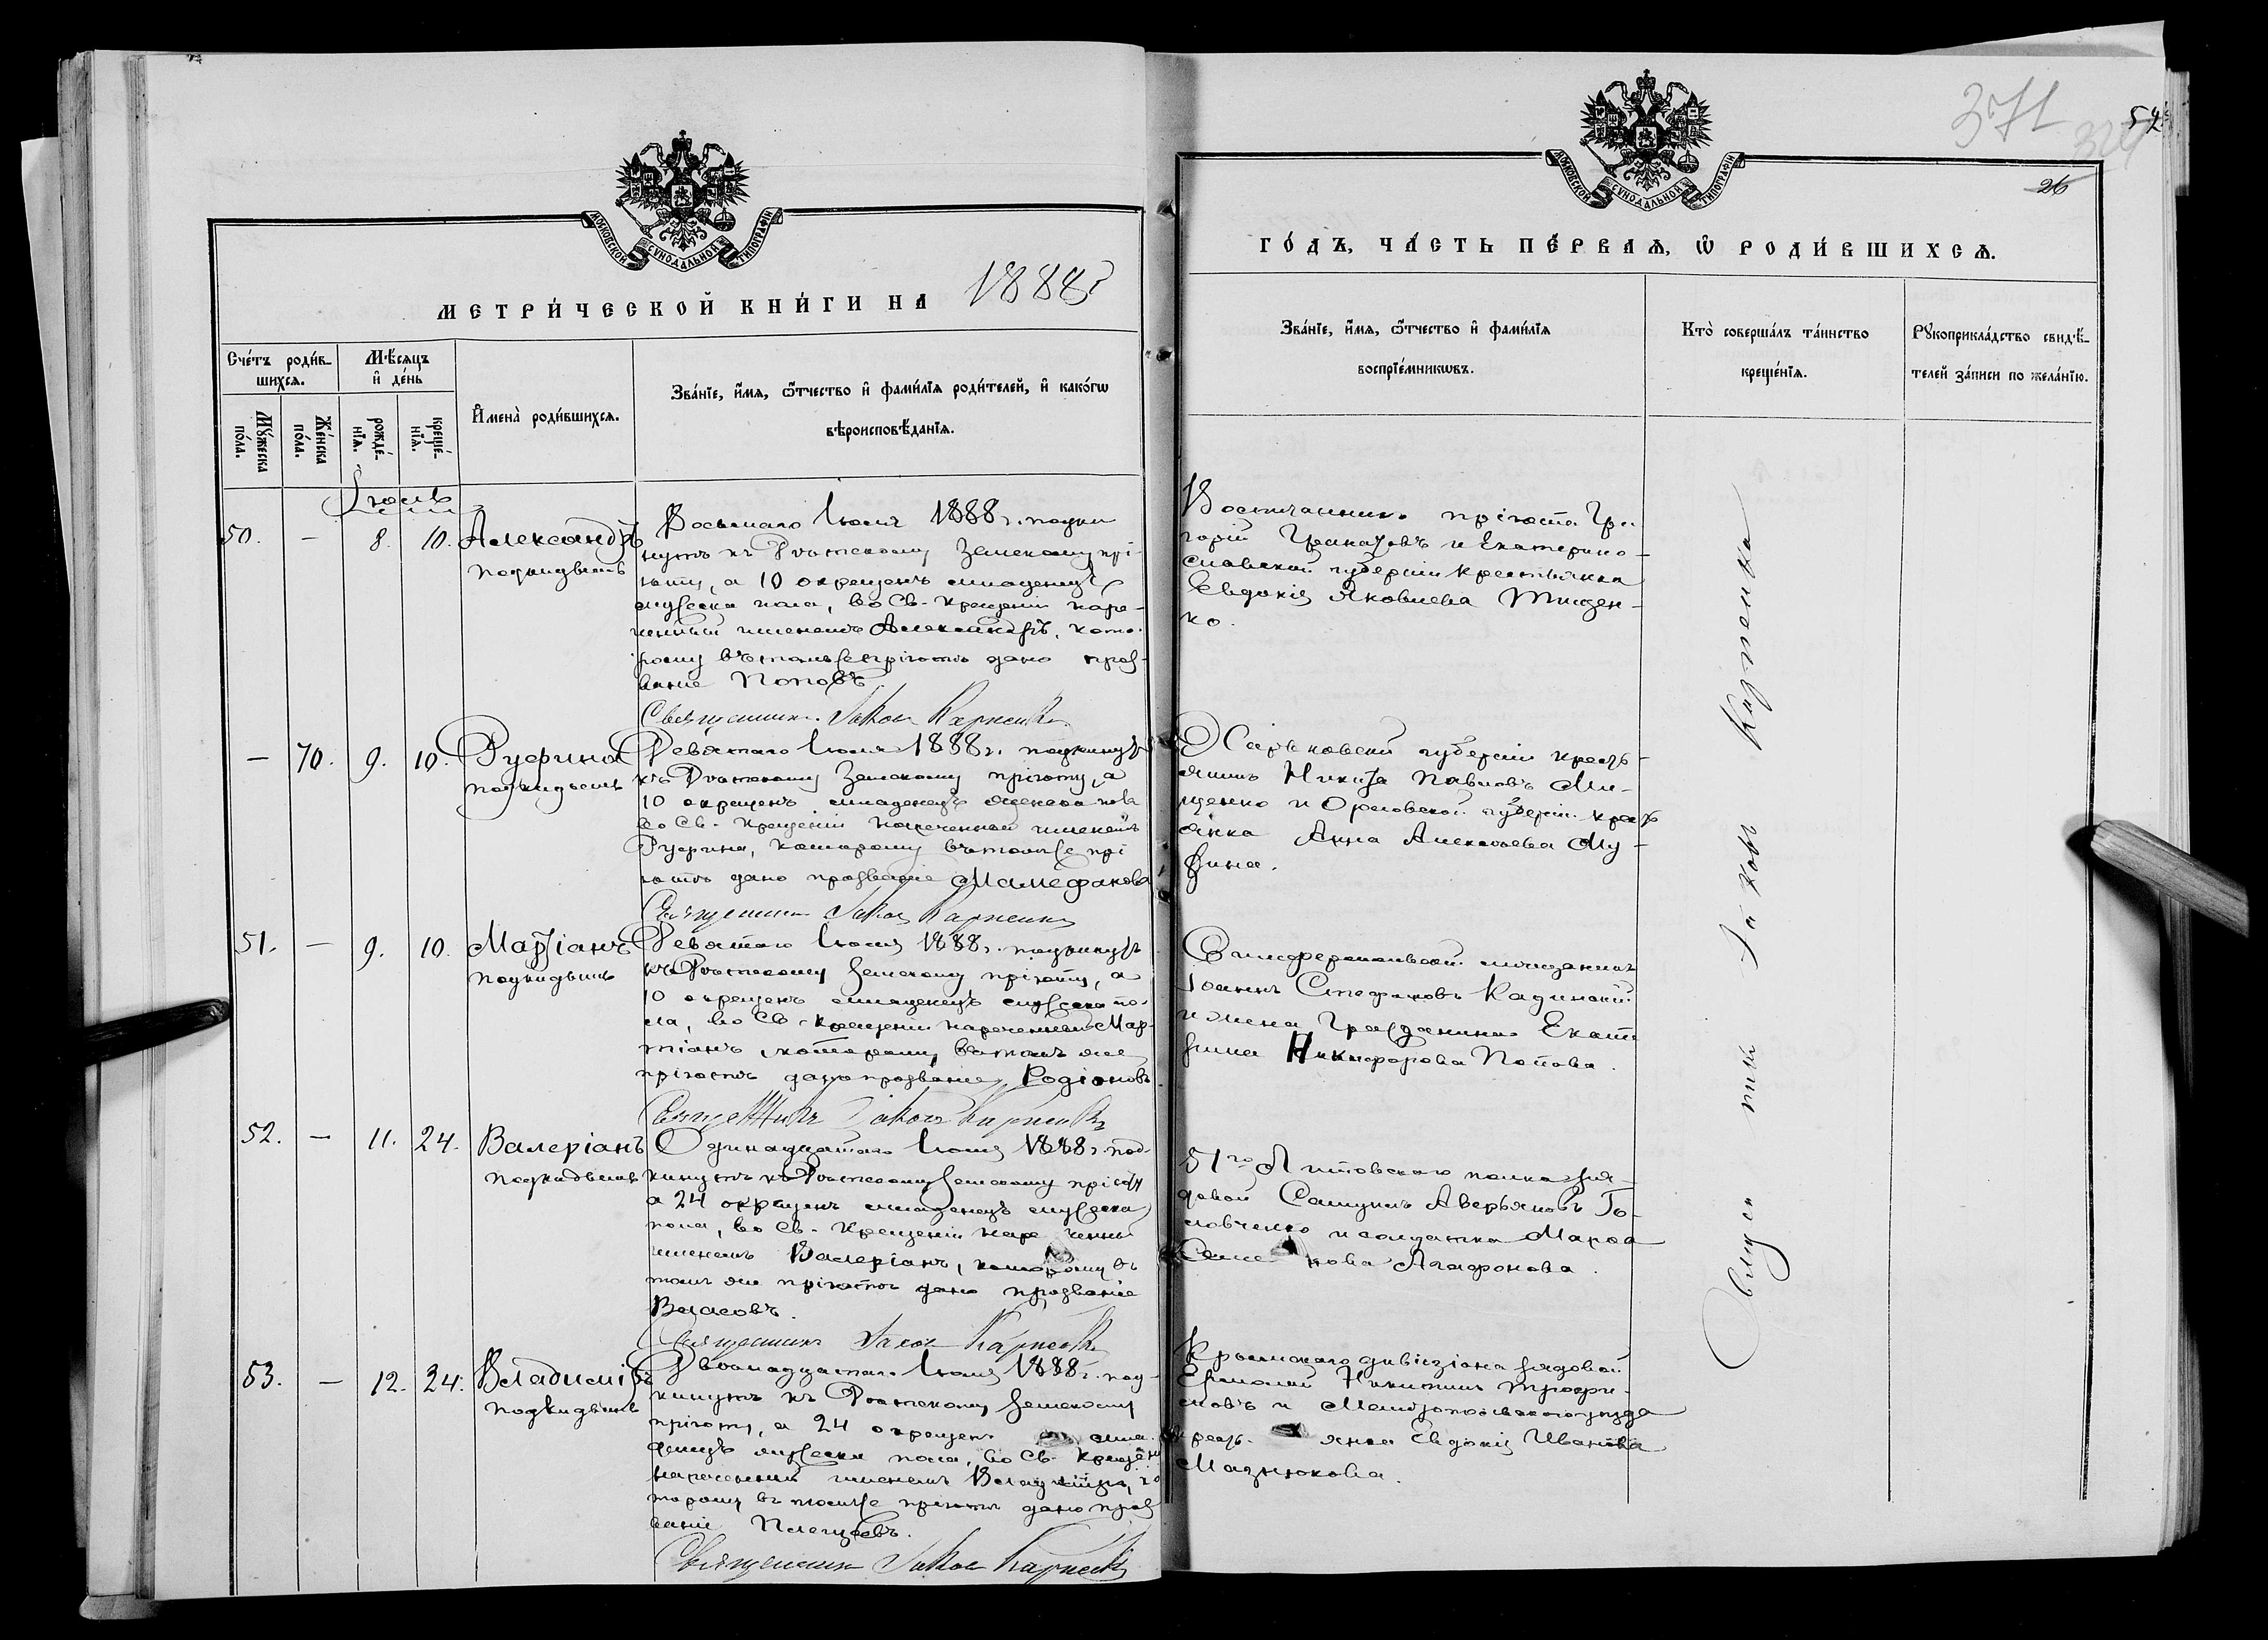 МОСКОВСКОЙ СѴНОДАЛЬНОЙ ТИПОГРАФІИ
МЕТРИ́ЧЕСКОЙ КНИ́ГИ НА 1888 г
Сче́тъ роди́в-
шихсѧ.
Мѣ́сѧцъ
и҆ де́нь
Мꙋ́жеска
по́ла.
Же́нска
по́ла.
рожде́-
нїѧ.
креще́-
нїѧ.
И҆мена̀ роди́вшихсѧ.
Зва́нїе, и҆́мѧ, ѻ҆́тчество и҆ фами́лїѧ роди́телей, и҆ како́гѡ
вѣроисповѣ́данїѧ.
Іюль
50. — 8. 10. Александръ
подкидышъ
Восьмаго Іюля 1888 г. подки
нутъ къ Ростовскому Земскому прі-
юту, а 10 окрещенъ младенецъ
мужеска пола, во Св. Крещеніи наре-
ченный именемъ Александръ, кото-
рому въ томъ же пріютѣ дано проз-
ваніе Поповъ.
Священникъ Іаковъ
— 70. 9. 10. Руфина
подкидышъ
Девятаго Іюля 1888 г. подкинутъ
къ Ростовскому Земскому пріюту, а
10 окрещенъ младенецъ женска пола
во Св. Крещеніи нареченный именемъ
Руфина, которому въ томъ же прі
ютѣ дано прозваніе
Священникъ Іаковъ
51. — 9. 10. Мартіанъ
подкидышъ
Девятаго Іюля 1888 г. подкинутъ
къ Ростовскому Земскому пріюту, а
10 окрещенъ младенецъ мужеска по-
ла, во Св. Крещеніи нареченный Мар-
тіанъ, которому въ томъ же
пріютѣ дано прозваніе Родіоновъ
Священникъ Іаковъ
52. — 11. 24. Валеріанъ
подкидышъ
Одинадцатаго Іюля 1888 г. под-
кинутъ къ Ростовскому Земскому пріюту
а 24 окрещенъ младенецъ мужеска
пола, во Св. Крещеніи наре ченный
именемъ Валеріанъ, которому въ
томъ же пріютѣ дано прозваніе
Власовъ.
Священникъ Іаковъ
53. — 12. 24. Владиміръ
подкидышъ
Двѣнадцатаго Іюля 1888 г. под-
кинутъ къ Ростовскому Земскому
пріюту, а 24 окрещенъ мла-
денецъ мужеска пола, во Св. Крещеніи
нареченный именемъ Владиміръ, ко
торому въ томъ же пріютѣ дано проз
ваніе
Священникъ Іаковъ
371
54
26
МОСКОВСКОЙ СѴНОДАЛЬНОЙ ТИПОГРАФІИ
ГО́ДЪ, ЧА́СТЬ ПЕ́РВАѦ, Ѡ҆ РОДИ́ВШИХСѦ.
Зва́нїе, и҆́мѧ, ѻ҆́тчество и҆ фами́лїѧ
воспрїе́мникѡвъ.
Кто̀ соверша́лъ та́инство
креще́нїѧ.
Рꙋкоприкла́дство свидѣ́-
телей за́писи по жела́нїю.
Воспитанникъ пріюта Гри-
горій и Екатерино-
славской губерніи крестьянка
Евдокія Яковлева Тищен-
ко.
Харьковской губерніи кресть-
янинъ Никита Павловъ Ми-
щенко и Орловской губерніи кресть
янка Анна Алексѣева Му-
рина.
Симферопольскій мѣщанинъ
Іоаннъ Стефановъ
и жена гражданина Екате
рина Никифорова Попова.
51го Литовскаго полка ря-
довой Самуилъ Аверьяновъ Го-
ловченко и солдатка Марѳа
Семе нова Агафонова.
Крымскаго дивизіона рядовой
Ермолай Никитинъ Трофи-
мовъ и Мелитопольскаго уѣзда
кресть- янка Евдокія Иванова
Мазнюкова.
Священникъ Іаковъ